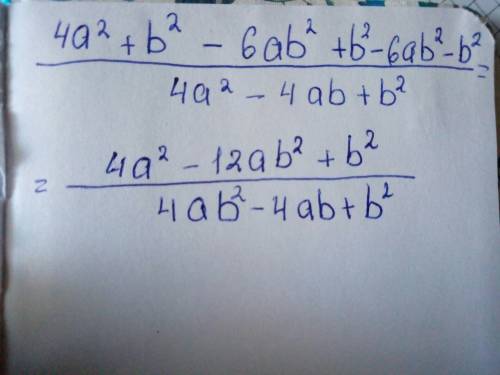 4a² + b² - 6ab² + b² - 6ab² - b²
4a² - 4ab + b² =
= 4a² - 12ab² + b²
4ab² - 4ab + b²